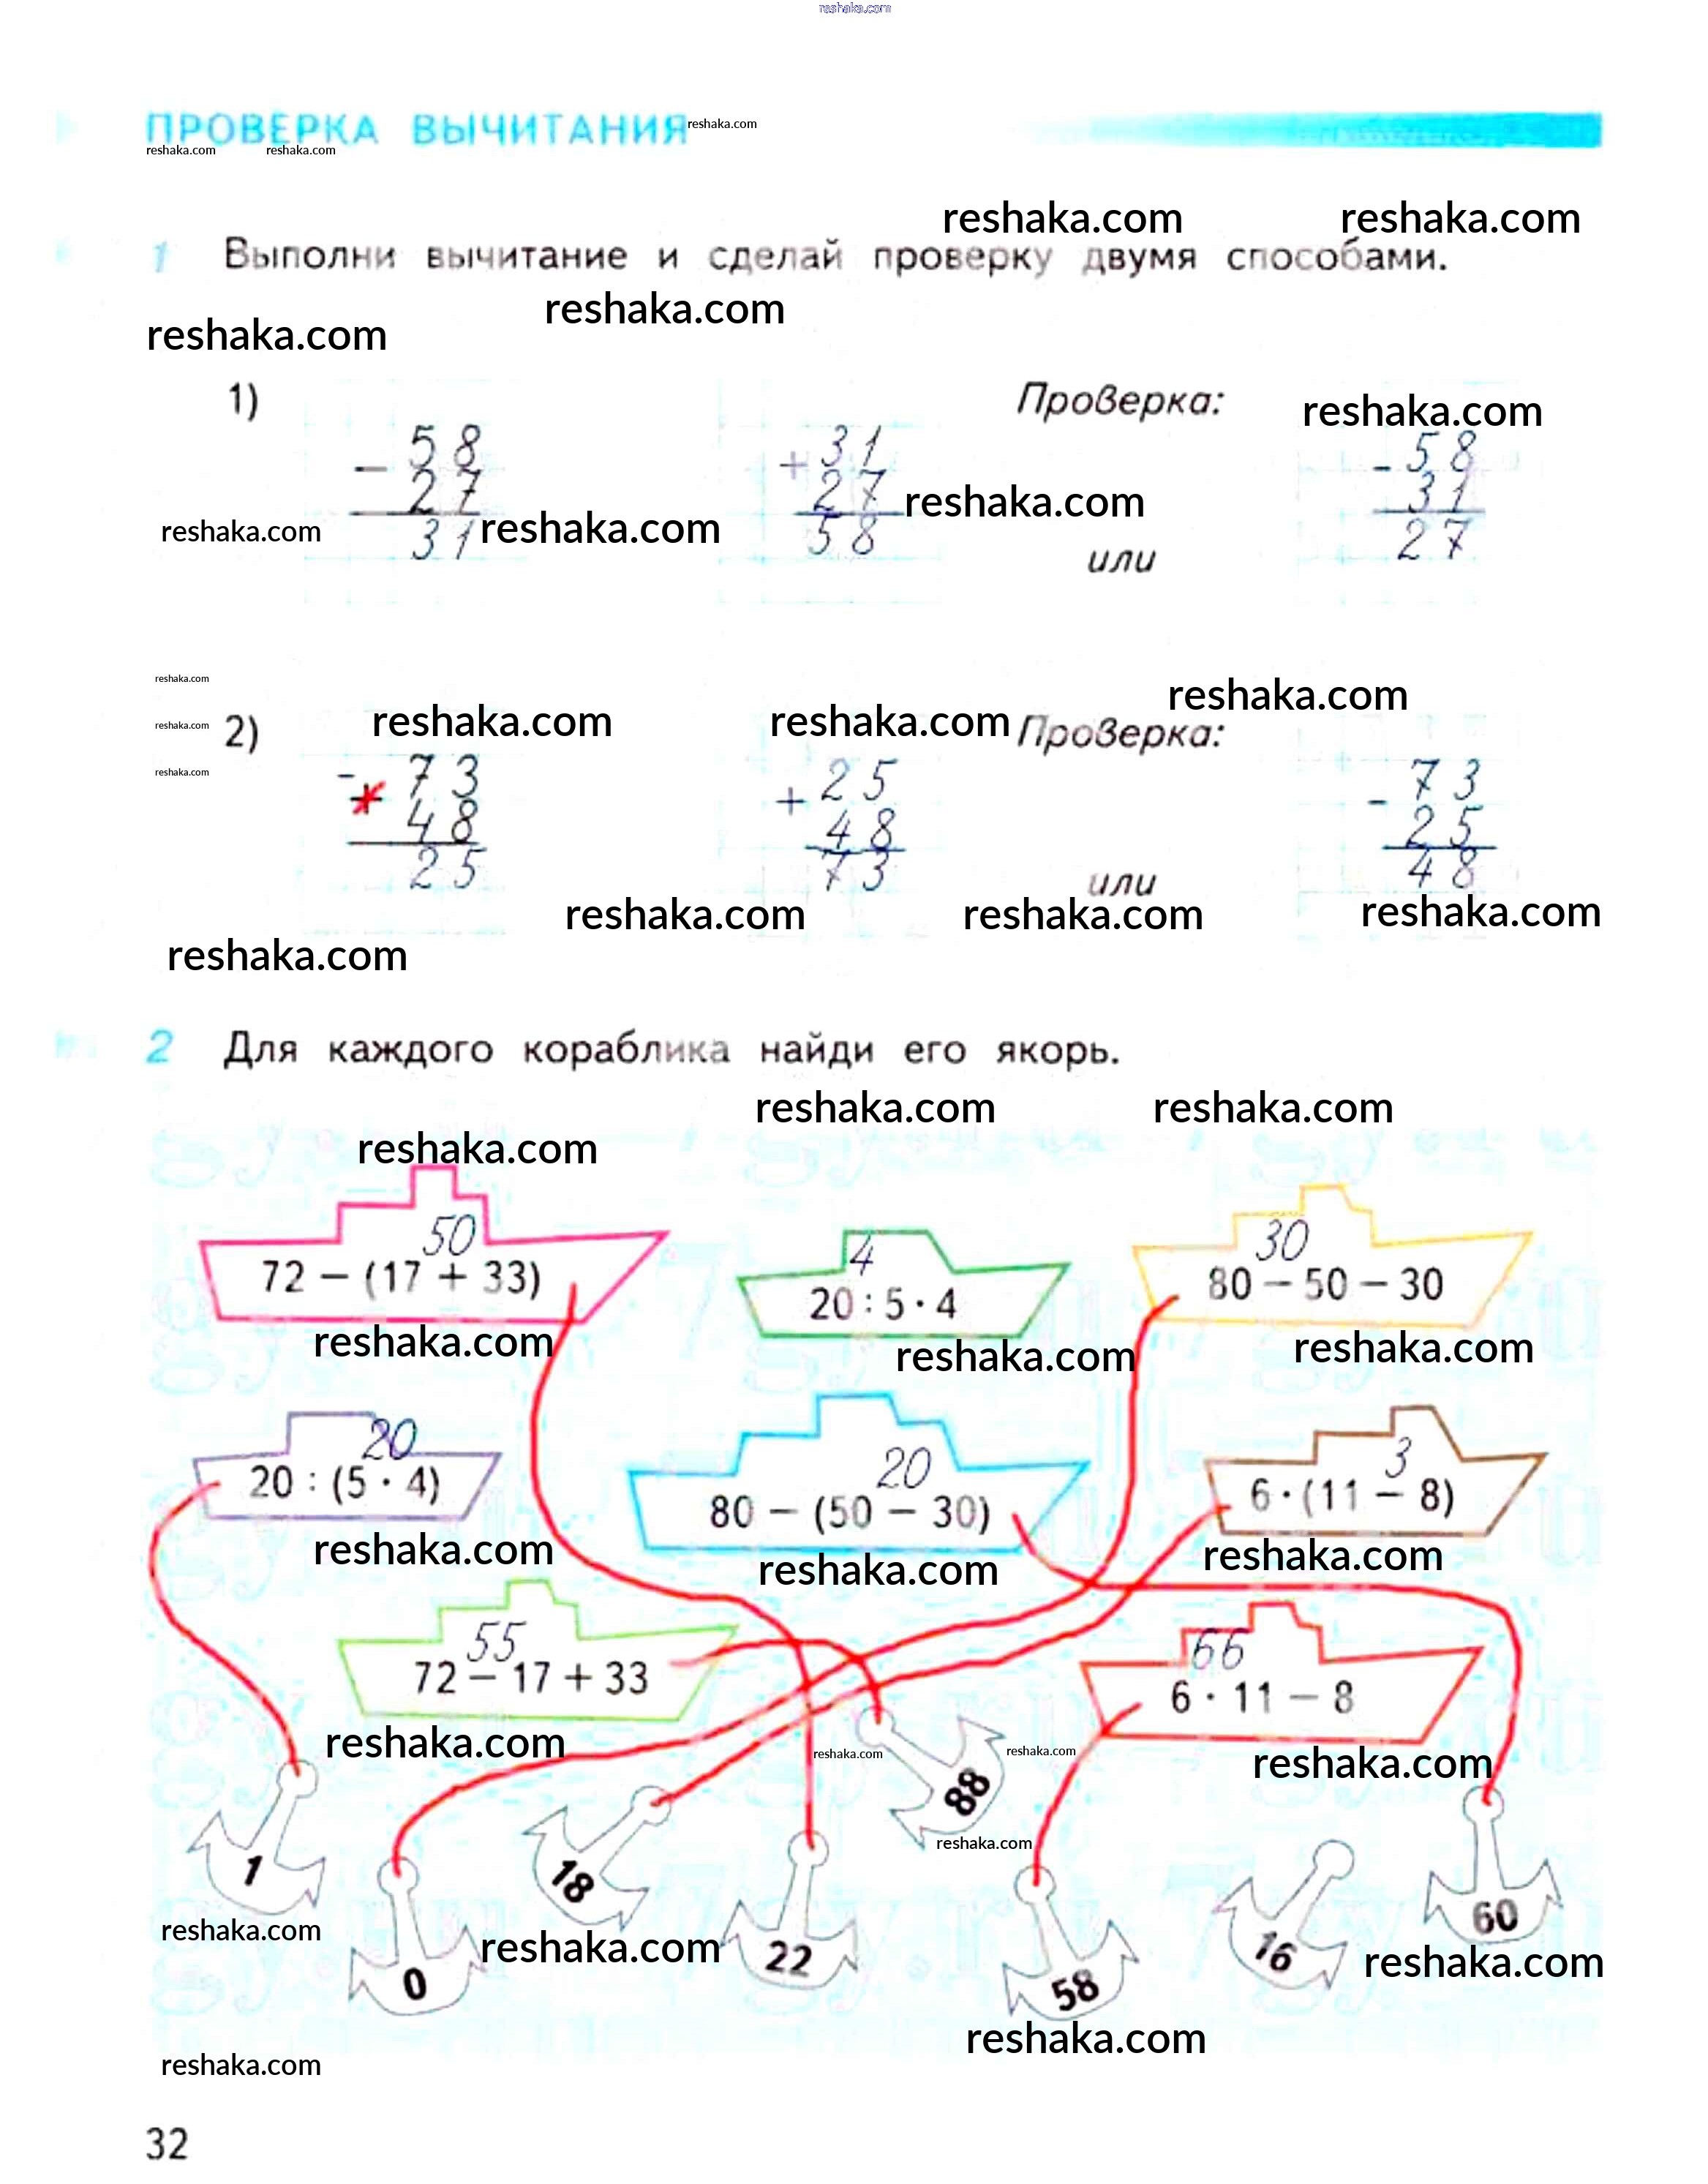 reshaka.com
ПРОВЕРКА ВЫЧИТАНИЯ reshaka.com
reshaka.com reshaka.com
reshaka.com reshaka.com
1 Выполни вычитание и сделай проверку двумя способами.
reshaka.com
reshaka.com
1) Проверка:
reshaka.com
− 58 + 31 − 58
27 27 31
reshaka.com
reshaka.com reshaka.com
31 58 27
или
reshaka.com
reshaka.com
reshaka.com reshaka.com reshaka.com
2) Проверка:
reshaka.com
− 73 + 25 − 73
+ 48 48 25
25 73 48
или
reshaka.com reshaka.com reshaka.com
reshaka.com
2 Для каждого кораблика найди его якорь.
reshaka.com reshaka.com
reshaka.com
50 4 30
72 − (17 + 33) 20 : 5 · 4 80 − 50 − 30
reshaka.com reshaka.com reshaka.com
20 20 3
20 : (5 · 4) 80 − (50 − 30) 6 · (11 − 8)
reshaka.com reshaka.com reshaka.com
55 66
72 − 17 + 33 6 · 11 − 8
reshaka.com reshaka.com reshaka.com reshaka.com
88
reshaka.com
1 18 60
reshaka.com reshaka.com reshaka.com
0 22 58 16
reshaka.com
reshaka.com
32